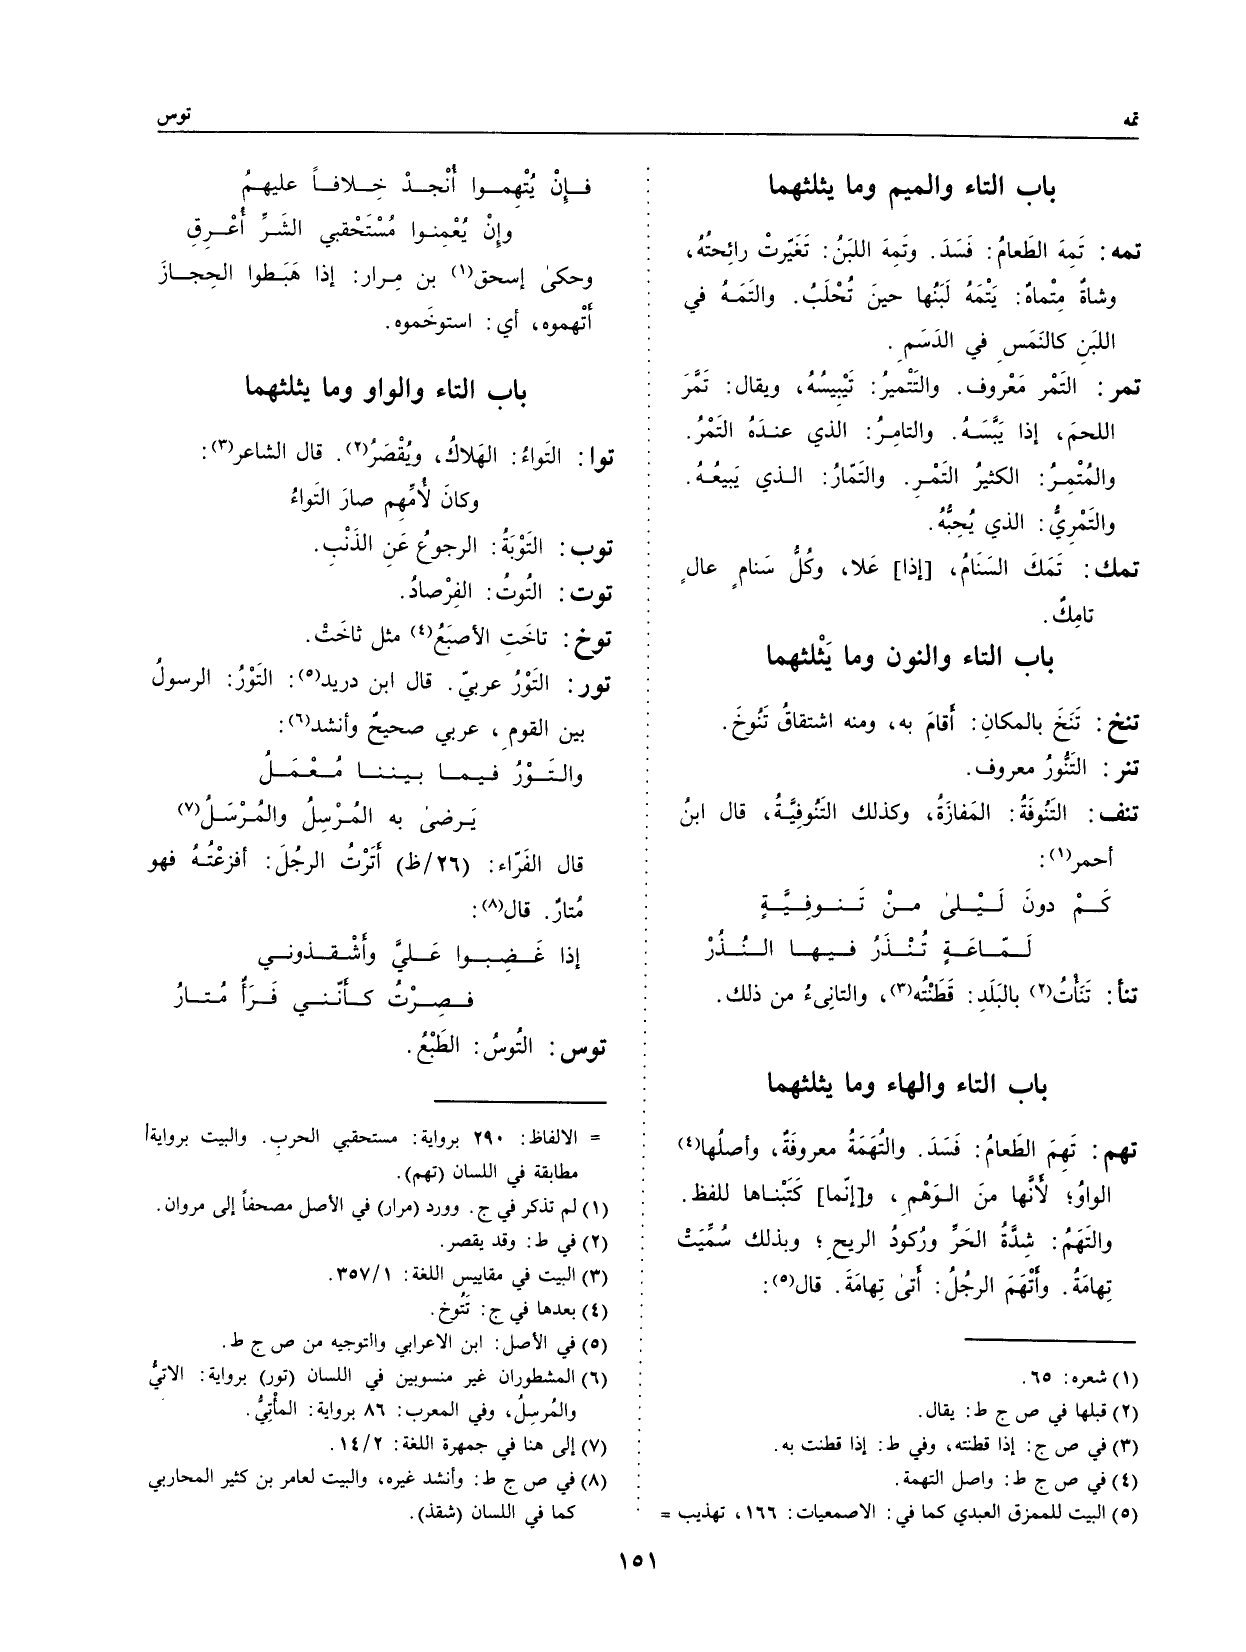 تمه
توس
باب التاء والميم وما يثلثهما
تمه: تَمِهَ الطَعامُ: فَسَدَ. وتَمِهَ اللبَنُ: تَغَيّرتْ رائحتُهُ،
وشاةٌ مِتْماهٌ: يَتْمَهُ لَبَنُها حينَ تُحْلَبُ. والتَمَهُ في
اللبَنِ كالنَمَسِ في الدَسَمِ.
تمر: التَمْر مَعْروف. والتَتْميرُ: تَيْبيسُهُ، ويقال: تَمَّرَ
اللحمَ، إذا يَبَّسَهُ. والتامِرُ: الذي عندَهُ التَمْرُ.
والمُتْمِرُ: الكثيرُ التَمْرِ. والتَمّارُ: الذي يَبيعُهُ.
والتَمْريُّ: الذي يُحِبُّهُ.
تمك: تَمَكَ السَنَامُ، [إذا] عَلا، وكُلُّ سَنامٍ عالٍ
تامِكٌ.
باب التاء والنون وما يَثْلثهما
تنخ: تَنَخَ بالمكانِ: أَقامَ به، ومنه اشتقاقُ تَنُوخَ.
تنر: التَنُّورُ معروف.
تنف: التَنُوفَةُ: المَفازَةُ، وكذلك التَنُوفِيَّةُ، قال ابنُ
أحمر(١):
كَمْ دونَ لَيْلىٰ مِنْ تَنوفِيَّةٍ
لَمّاعَةٍ تُنْذَرُ فيها النُذُرْ
تنأ: تَنَأْتُ(٢) بالبَلَدِ: قَطَنْتُه(٣)، والتانِىءُ من ذلك.
باب التاء والهاء وما يثلثهما
تهم: تَهِمَ الطَعامُ: فَسَدَ. والتُهَمَةُ معروفةٌ، وأصلُها(٤)
الواوُ؛ لأَنَّها منَ الوَهْمِ، و[إنّما] كَتَبْناها للفظ.
والتَهَمُ: شِدَّةُ الحَرِّ ورُكودُ الريحِ؛ وبذلك سُمِّيَتْ
تِهامَةُ. وأَتْهَمَ الرجُلُ: أَتىٰ تِهامَةَ. قال(٥):
(١) شعره: ٦٥.
(٢) قبلها في ص ج ط: يقال.
(٣) في ص ج: إذا قطنته، وفي ط: إذا قطنت به.
(٤) في ص ج ط: واصل التهمة.
(٥) البيت للممزق العبدي كما في: الاصمعيات: ١٦٦، تهذيب =
فإنْ يُتْهِموا أُنْجِدْ خِلافاً عليهمُ
وإنْ يُعْمِنوا مُسْتَحْقبي الشَرِّ أُعْرِقِ
وحكىٰ إسحق(١) بن مِرار: إذا هَبَطوا الحِجازَ
أَتْهموه، أي: استوخَموه.
باب التاء والواو وما يثلثهما
توا: التَواءُ: الهَلاكُ، ويُقْصَرُ(٢). قال الشاعر(٣):
وكانَ لأُمِّهم صارَ التَواءُ
توب: التَوْبَةُ: الرجوعُ عَنِ الذَنْبِ.
توت: التُوتُ: الفِرْصادُ.
توخ: تاخَتِ الأصبَعُ(٤) مثل ثاخَتْ.
تور: التَوْرُ عربيّ. قال ابن دريد(٥): التَوْرُ: الرسولُ
بين القومِ، عربي صحيحٌ وأنشد(٦):
والتَوْرُ فيما بيننا مُعْمَلُ
يَرضىٰ به المُرْسِلُ والمُرْسَلُ(٧)
قال الفَرّاء: (٢٦/ظ) أَتَرْتُ الرجُلَ: أفزعْتُهُ فهو
مُتارٌ. قال(٨):
إذا غَضِبوا عَليَّ وأَشْقَذوني
فصِرْتُ كأَنّني فَرَأٌ مُتارُ
توس: التُوسُ: الطَبْعُ.
= الالفاظ: ٢٩٠ برواية: مستحقبي الحرب. والبيت برواية
مطابقة في اللسان (تهم).
(١) لم تذكر في ج. وورد (مرار) في الأصل مصحفاً إلى مروان.
(٢) في ط: وقد يقصر.
(٣) البيت في مقاييس اللغة: ٣٥٧/١.
(٤) بعدها في ج: تَتُوخ.
(٥) في الأصل: ابن الاعرابي والتوجيه من ص ج ط.
(٦) المشطوران غير منسوبين في اللسان (تور) برواية: الاتيُّ
والمُرسِلُ، وفي المعرب: ٨٦ برواية: المأتِيُّ.
(٧) إلى هنا في جمهرة اللغة: ١٤/٢.
(٨) في ص ج ط: وأنشد غيره، والبيت لعامر بن كثير المحاربي
كما في اللسان (شقذ).
١٥١